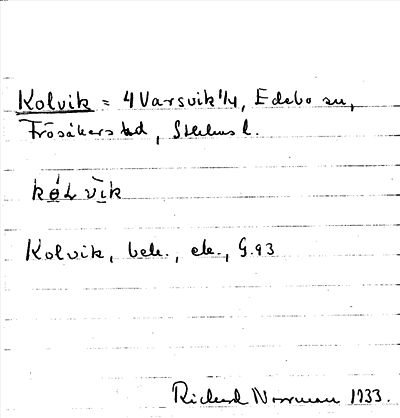 Kolvik = 4 Varsvik 1/4, Edebo sn,
Frösåkers hd, Sthlms l.
kólvik
Kolvik, bek., ek., G.93
Rickard Norrman 1933.